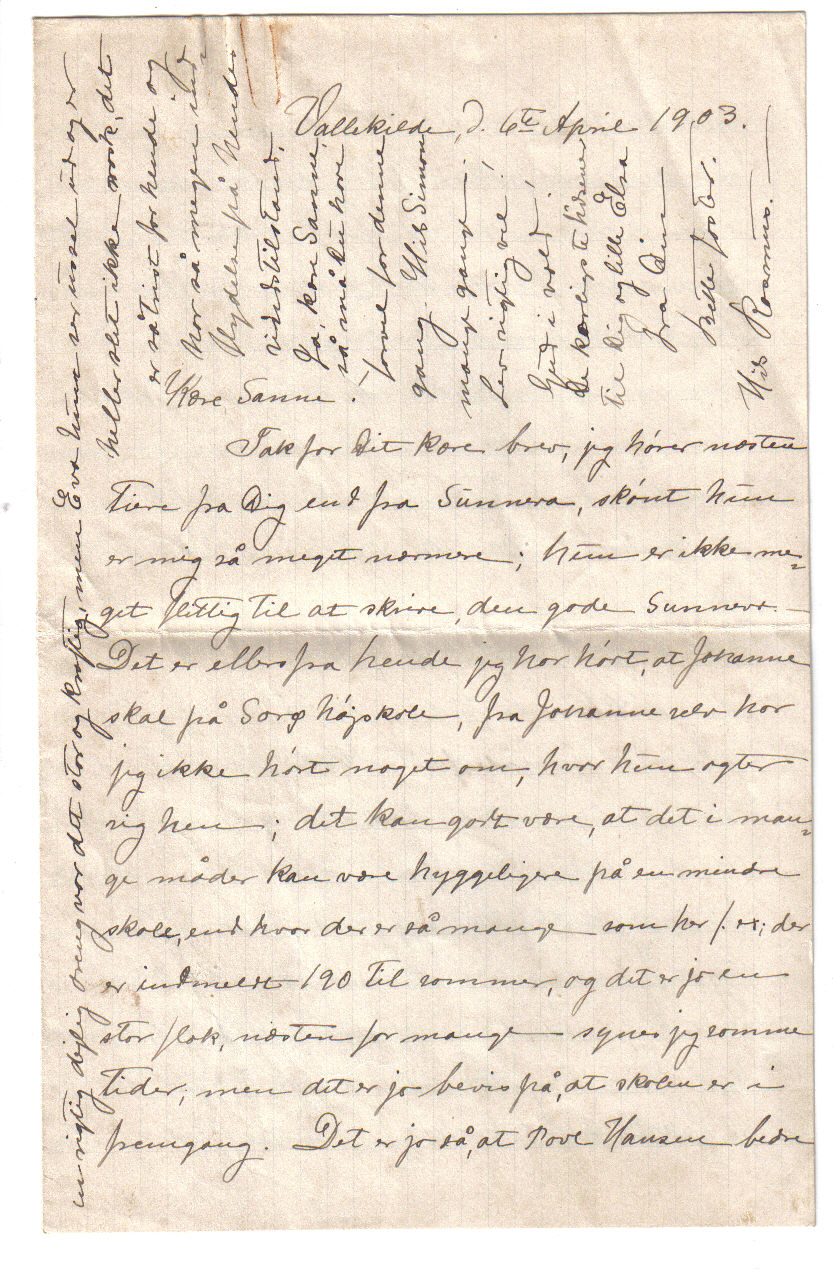 Vallekilde, d. 6te April 1903.
Kære Sanne!
Tak for Dit kære brev, jeg hører næsten
tiere fra Dig end fra Sunneva, skønt hun
er mig så meget nærmere; hun er ikke me=
get flittig til at skrive, den gode Sunneva.—
Det er ellers fra hende jeg har hørt, at Johanne
skal på Sorø højskole, fra Johanne selv har
jeg ikke hørt noget om, hvor hun agter
sig hen; det kan godt være, at det i man=
ge måder kan være hyggeligere på en mindre
skole, end hvor der er så mange som her f. ex; der
er indmeldt 190 til sommer, og det er jo en
stor flok, næsten for mange synes jeg somme
tider, men det er jo bevis på, at skolen er i
fremgang. Det er jo så, at Povl Hansen bedre
en rigtig dejlig dreng var det stor og kraftig, men Eva hun ser ussel ud og er
heller slet ikke rask, det
er så trist for hende og
har så megen ind=
flydelse på hendes
sindstilstand.
Ja, kære Sanne,
så må Du have
farvel for denne
gang. Hils Simon
mange gange.
Lev rigtig vel!
Gud i vold!
De kærligste hilsener
til Dig og lille Elsa
fra Din
Hils Rasmus.—